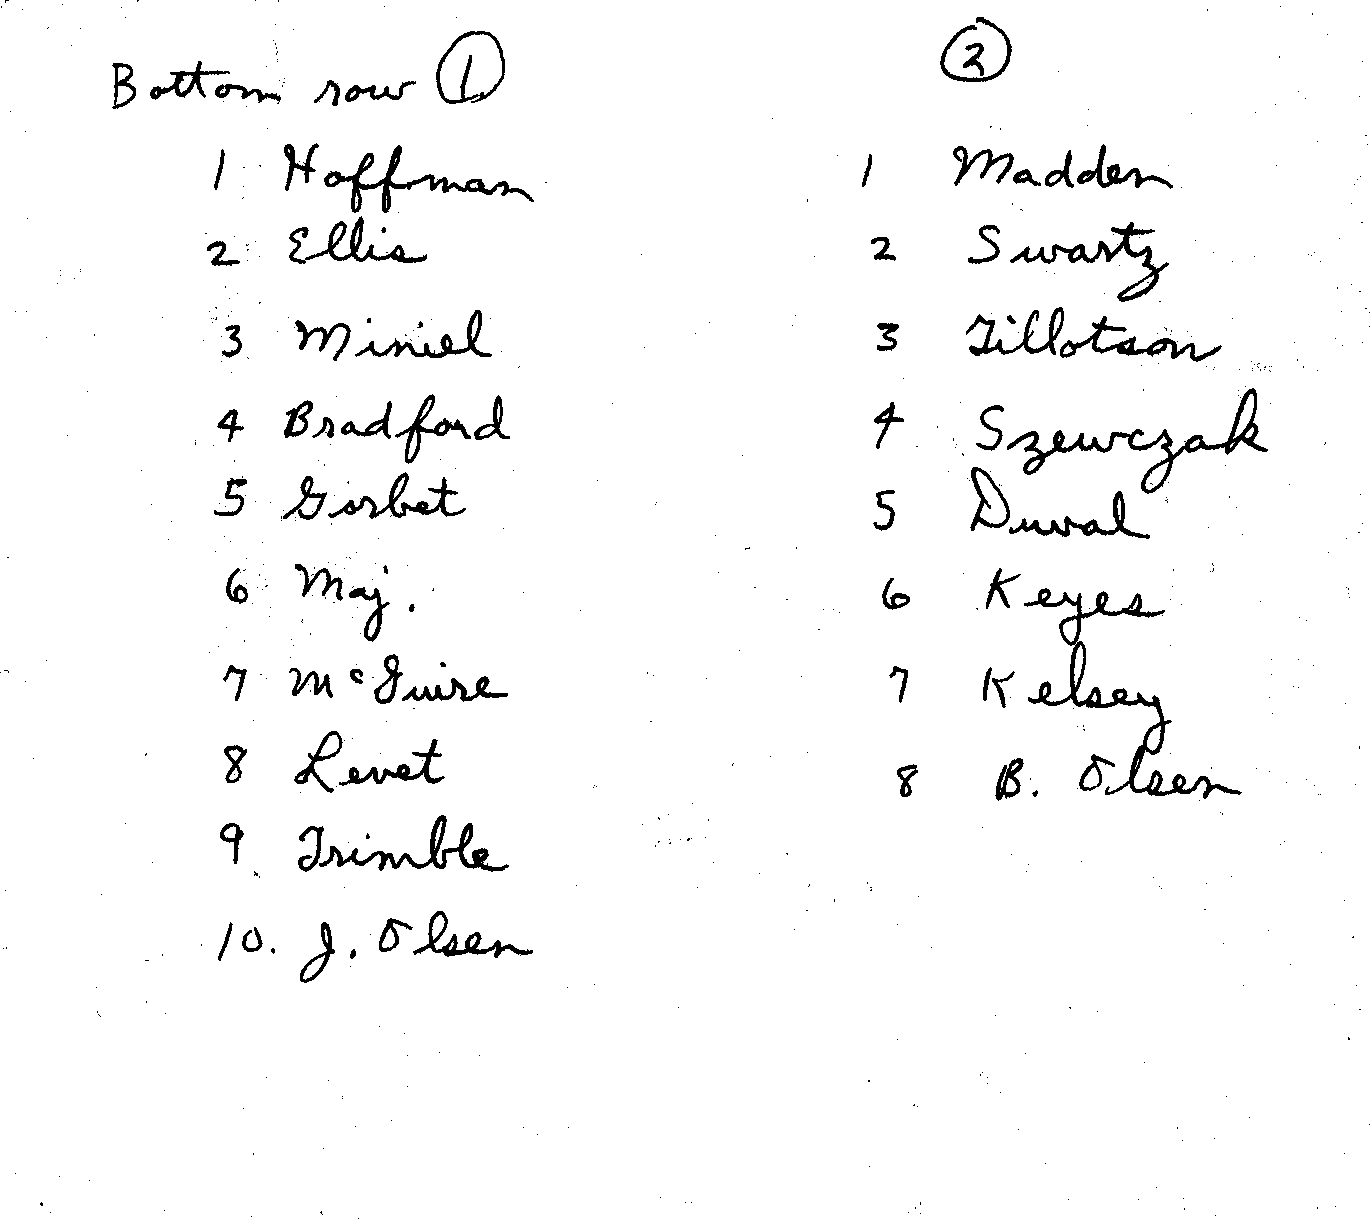 Bottom row 1
1 Hoffman
2 Ellis
3 Miniel
4 Bradford
5 Gorbet
6 Maj.
7 McGuire
8 Levet
9 Trimble
10. J. Olsen
2
1 Madden
2 Swartz
3 Tillotson
4 Szewczak
5 Duval
6 Keyes
7 Kelsey
8 B. Olsen